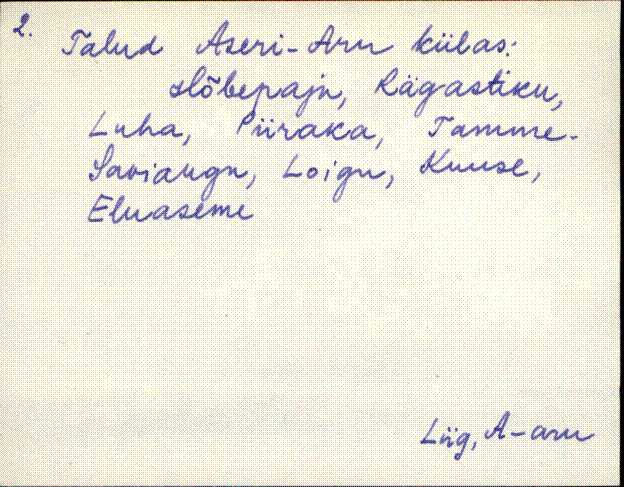 2. Talud Aseri-Aru külas:
Hõbepaju, Rägastiku,
Luha, Piiraka, Tamme-
Saviaugu, Loigu, Kuuse,
Eluaseme
Liig, A-aru